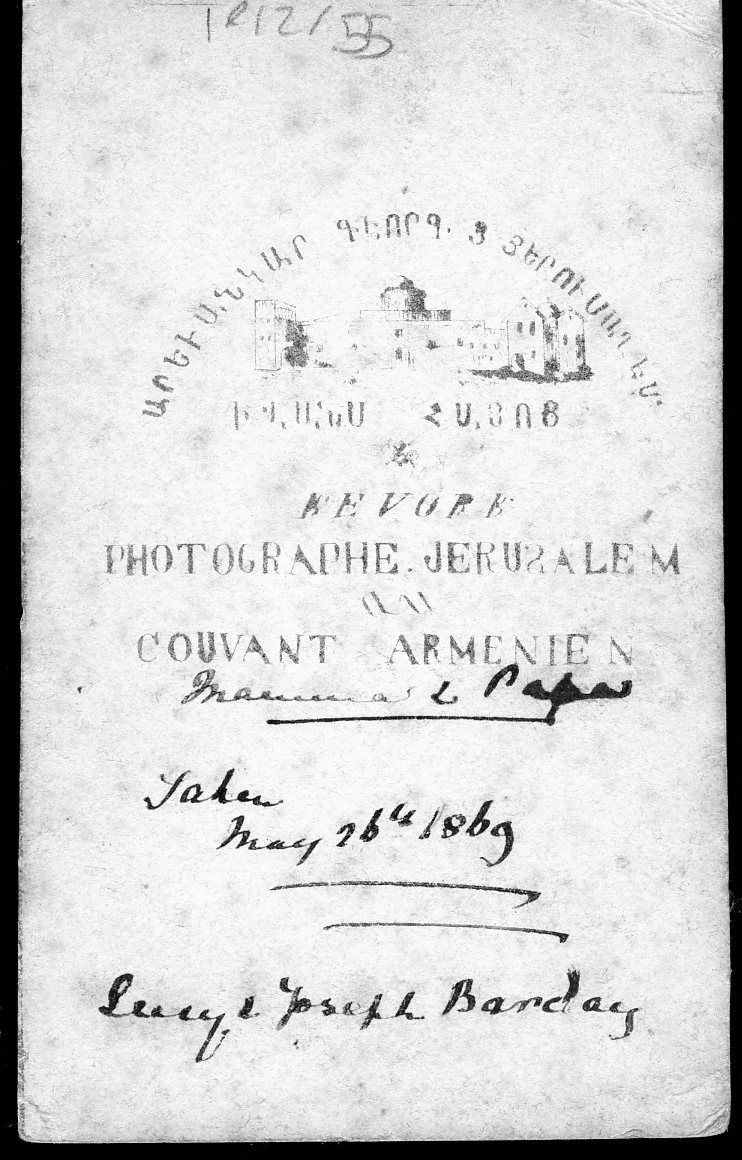 1212/55
ԱՐԵՒԱՆԿԱՐ ԳԷՈՐԳ. Յ ՅԵՐՈՒՍԱՂԷՄ
Ի ՎԱՆՍ ՀԱՅՈՑ
KEVORK
PHOTOGRAPHE. JERUSALEM
AU
COUVANT ARMENIEN
Mamma & Papa
Taken
May 26th 1869
Lucy & Joseph Barclay